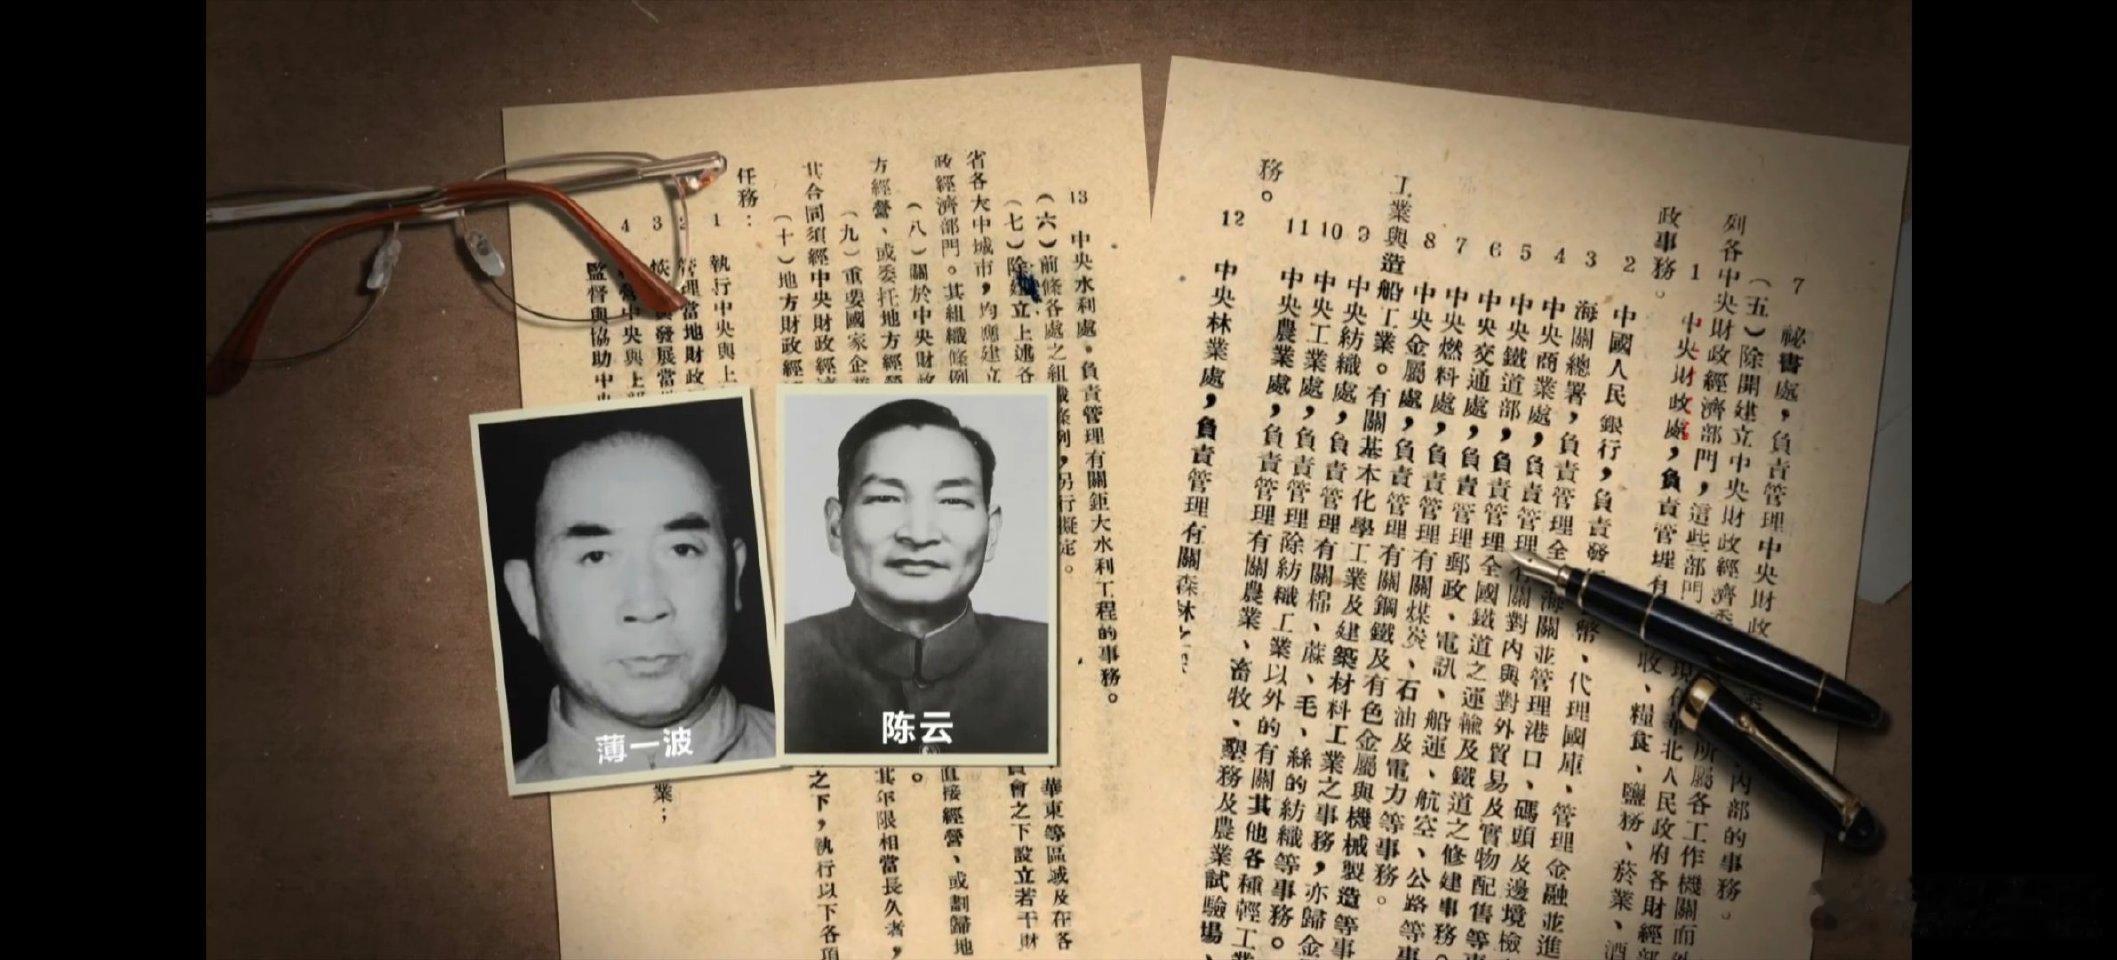 7 祕書處，負責管理中央財政內部的事務。
（五）除開建立中央財政經濟委所屬各工作機關而
列各中央財政經濟部門，這些部門現在華北人民政府各財經部
1 中央財政處，負責管理有收、糧食、鹽務、菸業、酒
政事務。
2 中國人民銀行，負責發幣、代理國庫、管理金融並進
3 海關總署，負責管理全海關並管理港口、碼頭及邊境檢
4 中央商業處，負責管理有關對內與對外貿易及實物配售等事
5 中央鐵道部，負責管理全國鐵道之運輸及鐵道之修建事務。
6 中央交通處，負責管理郵政、電訊、船運、航空、公路等事
7 中央燃料處，負責管理有關煤炭、石油及電力等事務。
8 中央金屬處，負責管理有關鋼鐵及有色金屬與機械製造等事
工業與造船工業。有關基本化學工業及建築材料工業之事務，亦歸金
9 中央紡織處，負責管理有關棉、蔴、毛、絲的紡織等事務。
10 中央工業處，負責管理除紡織工業以外的有關其他各種輕工業
11 中央農業處，負責管理有關農業、畜牧、墾務及農業試驗場、
務。
12 中央林業處，負責管理有關森林之
13 中央水利處，負責管理有關鉅大水利工程的事務。
（六）前條各處之組織條例，另行擬定。
（七）除建立上述各華東等區域及在各
省各大中城市，均應建立員會之下設立若干財
政經濟部門。其組織條例
（八）關於中央財政直接經營、或劃歸地
方經營、或委托地方經營。
（九）重要國家企業其年限相當長久者，
其合同須經中央財政經濟
（十）地方財政經之下，執行以下各項
任務：
1 執行中央與上
2 管理當地財政
3 恢發展當業；
4 中央與上部
監督與協助中央
薄一波
陈云